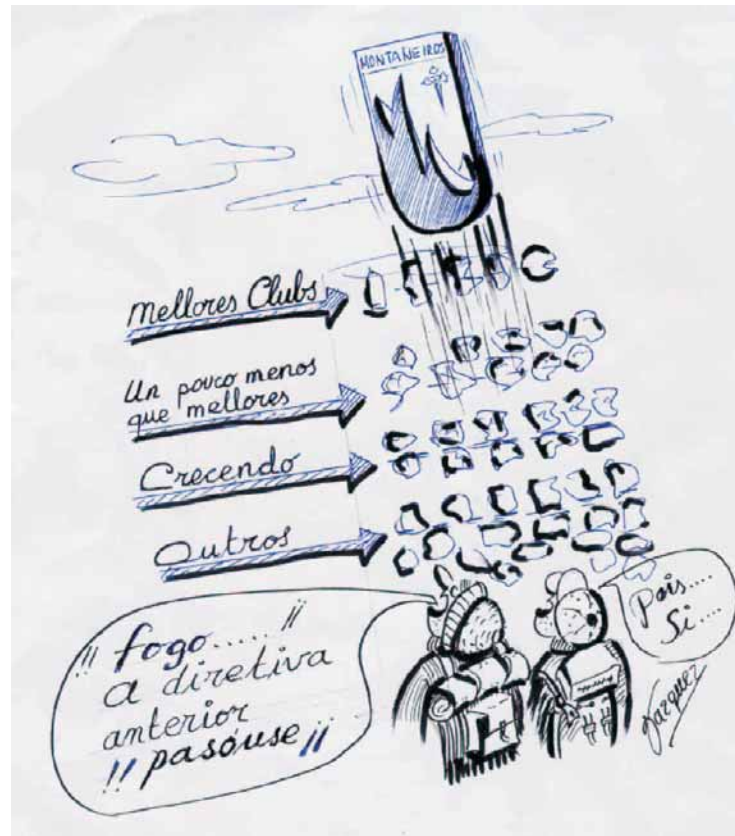 MONTAÑEIROS
Mellores Clubs
Un pouco menos
que mellores
Crecendo
Outros
¡¡ fogo..... ¡¡
a diretiva
anterior
!! pasóuse ¡¡
Pois....
Si....
Vazquez